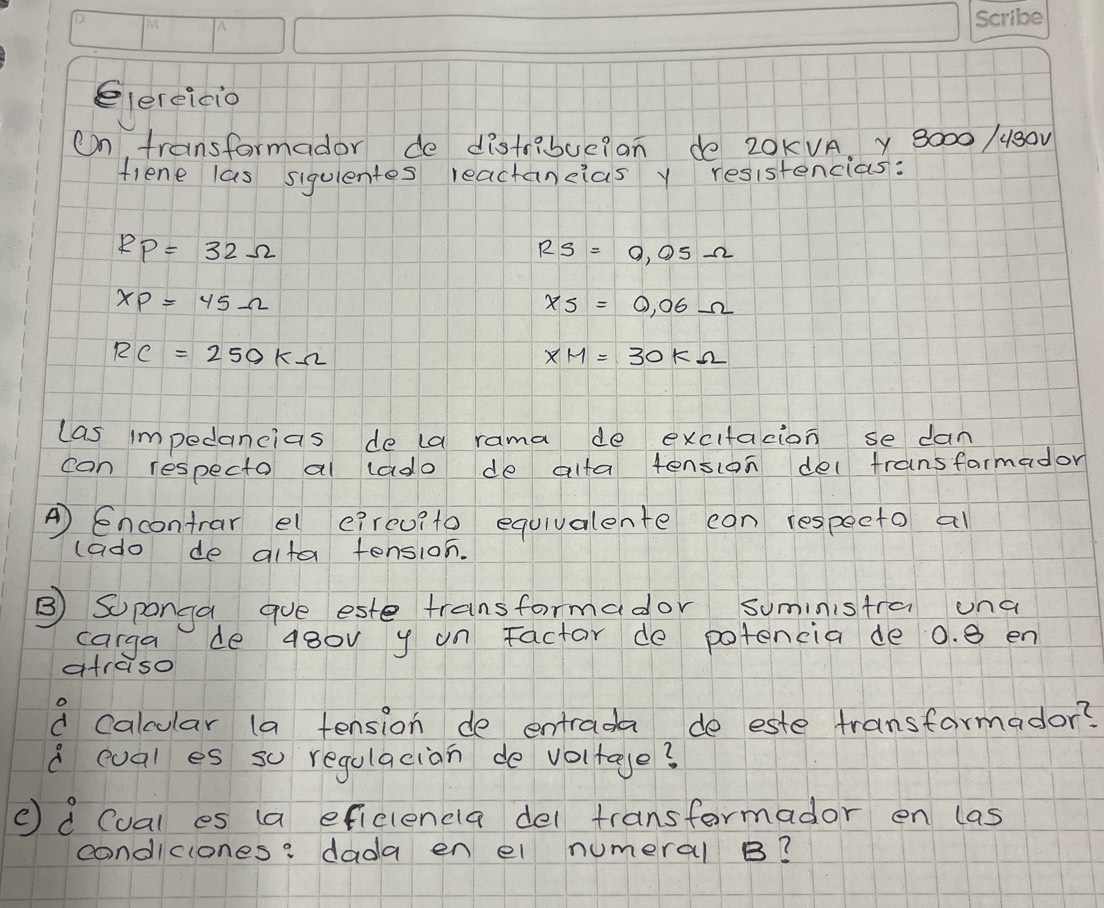 D M A Scribe
Ejercicio
Un transformador de distribución de 20KVA y 8000/480V
tiene las siguientes reactancias y resistencias:
RP = 32 Ω RS = 0,05 Ω
XP = 45 Ω XS = 0,06 Ω
RC = 250 KΩ XM = 30 KΩ
Las impedancias de la rama de excitación se dan
con respecto al lado de alta tensión del transformador
A) Encontrar el circuito equivalente con respecto al
lado de alta tensión.
B) Suponga que este transformador suministra una
carga de 480V y un Factor de potencia de 0.8 en
atraso
¿ Calcular la tensión de entrada de este transformador?
¿ Cual es su regulación de voltaje?
C) ¿ Cual es la eficiencia del transformador en las
condiciones: dada en el numeral B?